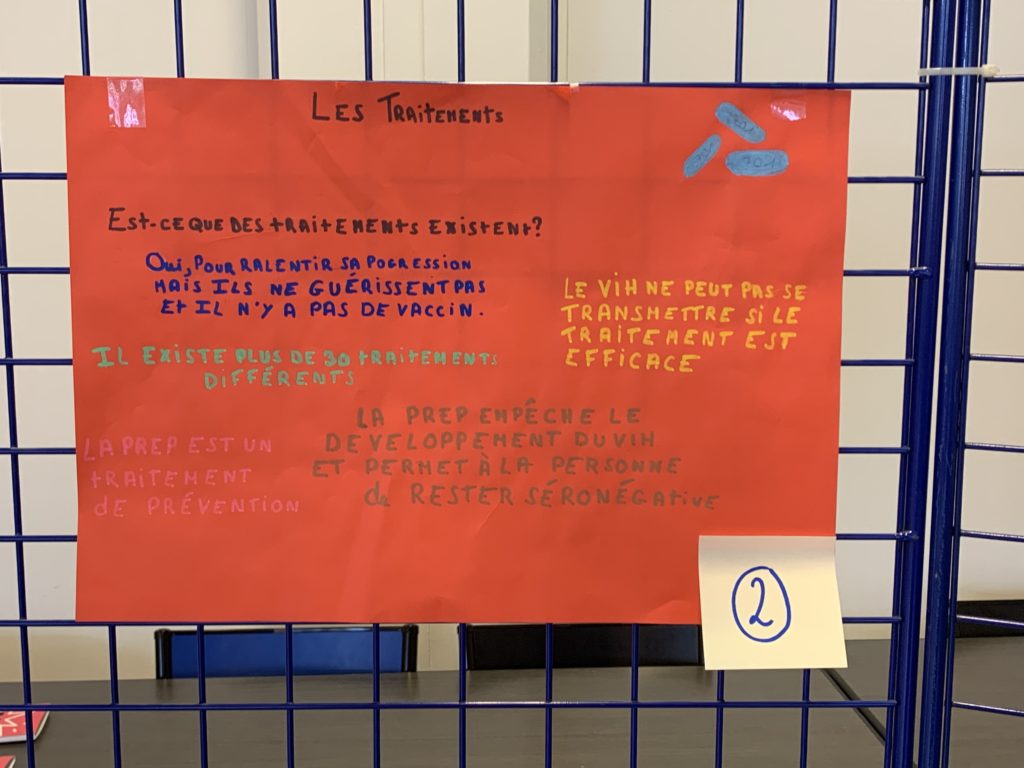 LES TRAITEMENTS
701
701
701
EST-CE QUE DES TRAITEMENTS EXISTENT?
OUI, POUR RALENTIR SA POGRESSION
MAIS ILS NE GUÉRISSENT PAS
ET IL N'Y A PAS DE VACCIN.
LE VIH NE PEUT PAS SE
TRANSMETTRE SI LE
TRAITEMENT EST
EFFICACE
IL EXISTE PLUS DE 30 TRAITEMENTS
DIFFÉRENTS
LA PREP EMPÊCHE LE
DEVELOPPEMENT DU VIH
ET PERMET À LA PERSONNE
de RESTER SÉRONÉGATIVE
LA PREP EST UN
TRAITEMENT
de PRÉVENTION
2